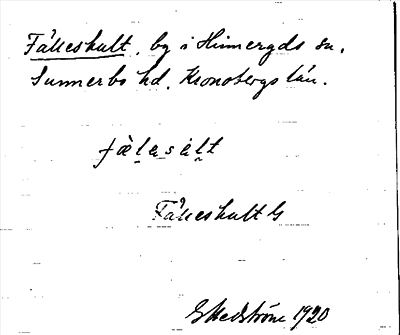 Fålleshult, by i Hinneryds sn,
Sunnerbo hd, Kronobergs län.
fàlasált
Fålleshult G
G Hedström 1920